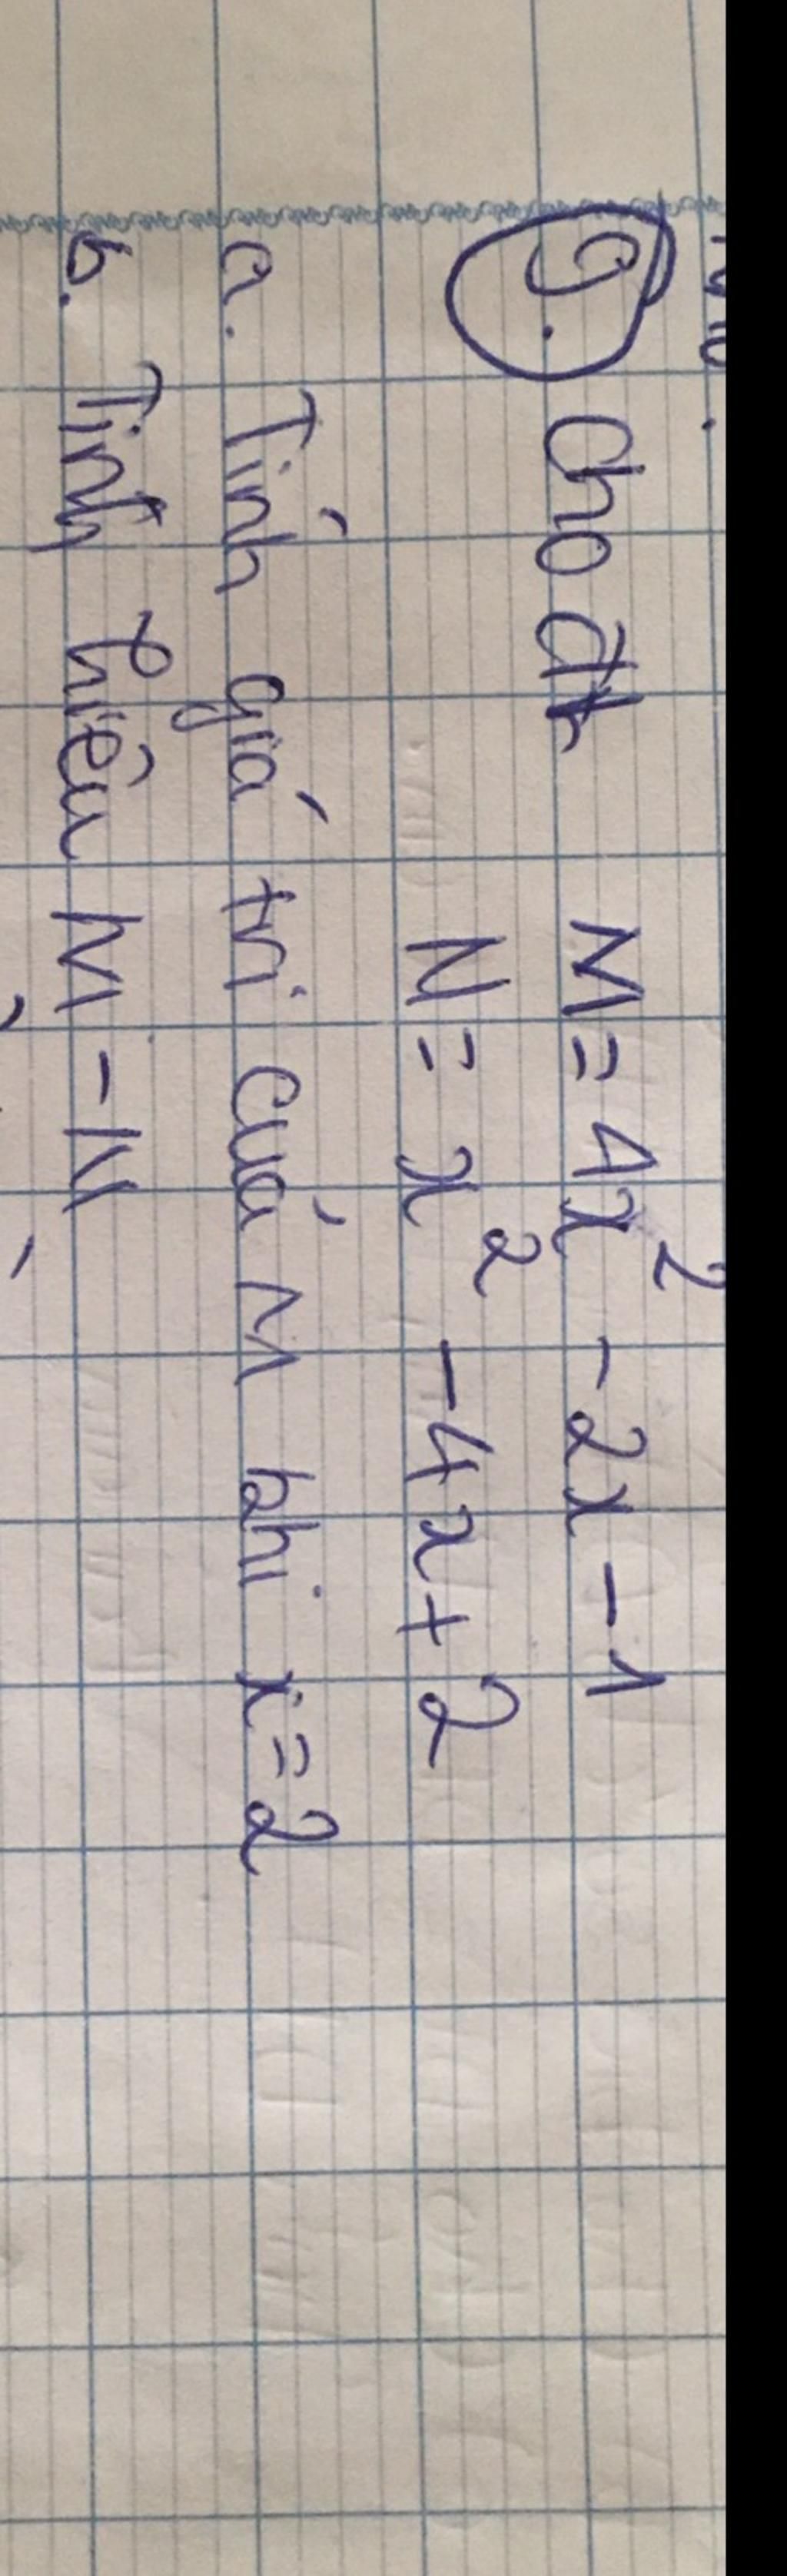 9. Cho đt M = 4x² - 2x - 1
N = x² - 4x + 2
a. Tính giá trị của M khi x = 2
b. Tính hiệu M - N